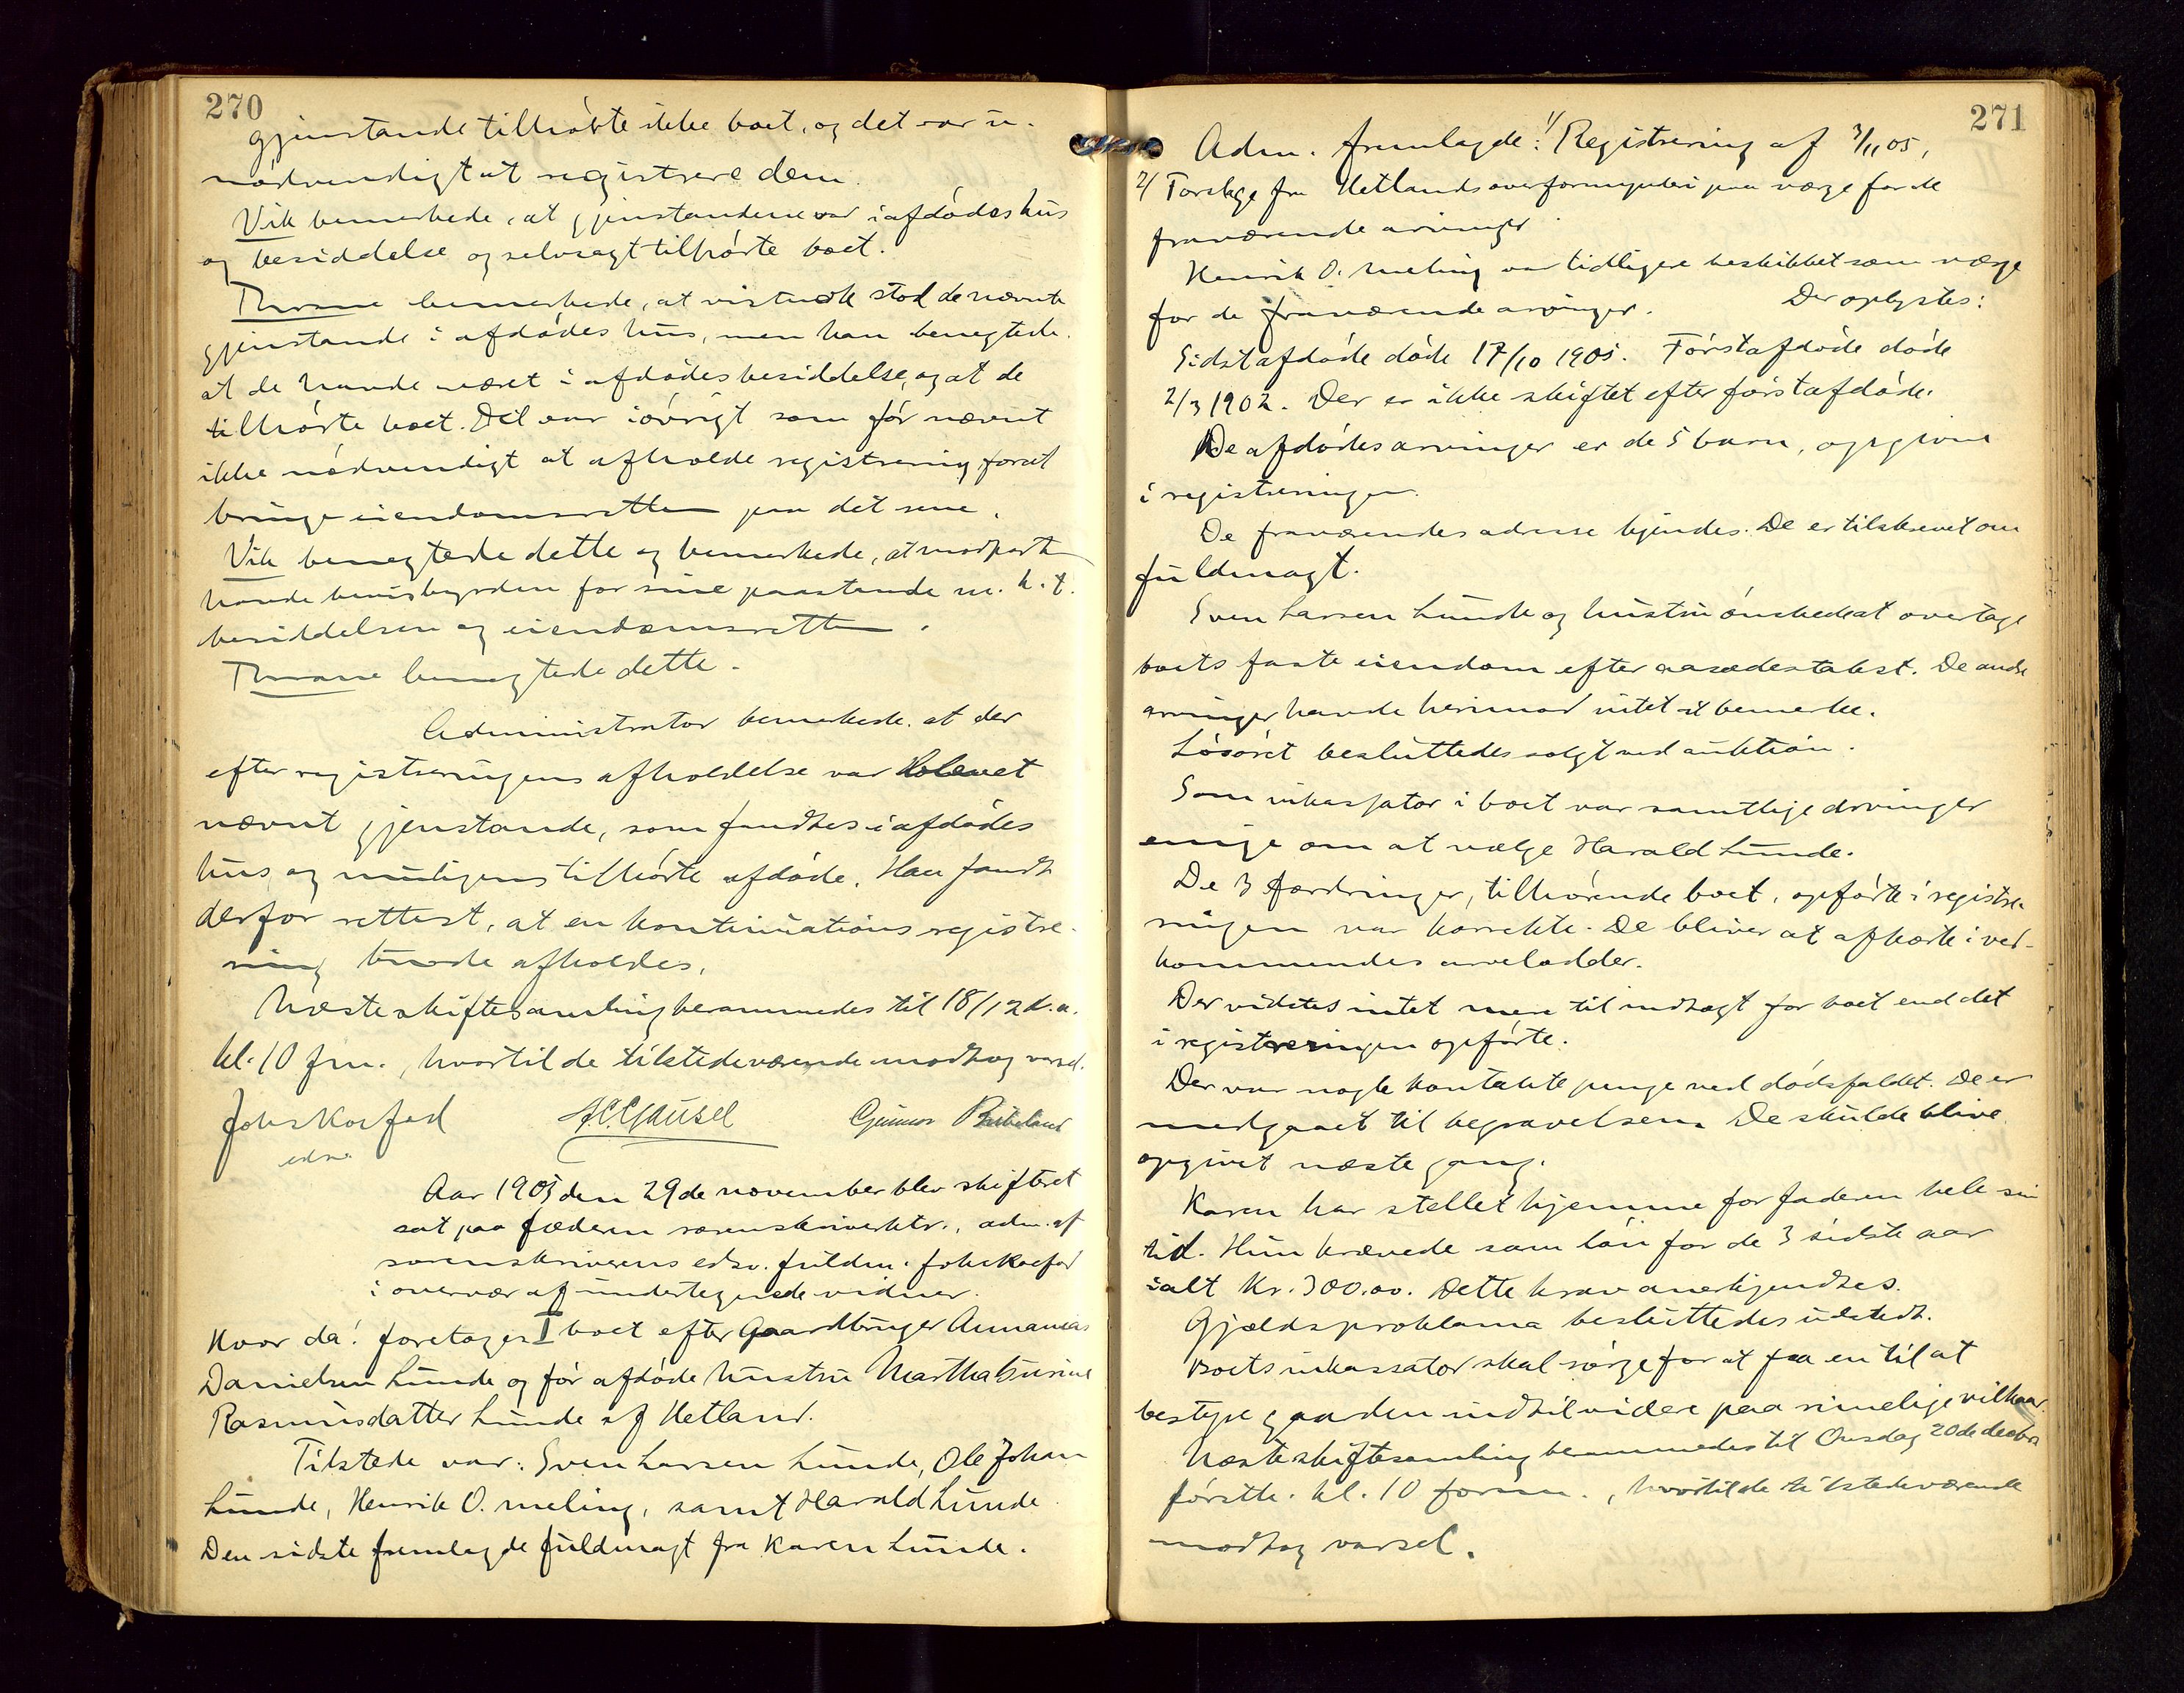 270
gjenstande tilhørte ikke boet, og det var u-
nødvendigt at registrere dem.
Vik bemerkede, at gjenstandene var i afdødes hus
og besiddelse og selvsagt tilhørte boet.
Thrane bemerkede, at vistnok stod de nævnte
gjenstande i afdødes hus, men han benegtede
at de havde været i afdødes besiddelse, og at de
tilhørte boet. Det var iøvrigt som før nævnt
ikke nødvendigt at afholde registrering forat
bringe eiendomsretten paa det rene.
Vik benegtede dette og bemerkede, at modparten
havde bevisbyrden for sine paastande m. h. t.
besiddelsen og eiendomsretten.
Thrane benegtede dette.
Administrator bemerkede, at der
efter registreringens afholdelse var blevet
nævnt gjenstande, som fandtes i afdødes
hus og muligens tilhørte afdøde. Han fandt
derfor rettest, at en kontinuationsregistre-
ring burde afholdes.
Næste skiftesamling berammedes til 18/12 d. a.
kl. 10 fm., hvortil de tilstedeværende modtog varsel.
Johs Koefod
edsv.
Gausel
Gunnar
Aar 1905 den 29de november blev skifteret
sat paa Jæderen sorenskriverktr., adm. af
sorenskriverens edsv. fuldm. Johs Koefod
i overvær af undertegnede vidner.
Hvor da: foretoges I boet efter Gaardbruger Annanias
Danielsen Lunde og før afdøde hustru Martha Gurine
Rasmusdatter Lunde af Hetland.
Tilstede var: Sven Larsen Lunde, Ole Johan
Lunde, Henrik O. Meling, samt Harald Lunde.
Den sidste fremlagde fuldmagt fra Karen Lunde.
271
Adm. fremlagde: 1/ Registrering af 3/11 05,
2/ Forslag fra Hetlands overformynderi paa værge for de
fraværende arvinger
Henrik O. Meling var tidligere beskikket som værge
for de fraværende arvinger. Der oplystes:
Sidstafdøde døde 17/10 1905. Førstafdøde døde
2/3 1902. Der er ikke skiftet efter førstafdøde.
De afdødes arvinger er de 5 barn, opgivne
i registreringen.
De fraværendes adresse kjendes. De er tilskrevet om
fuldmagt.
Sven Larsen Lunde og hustru ønskede at overtage
boets faste eiendom efter aasædestakst. De andre
arvinger havde herimod intet at bemerke.
Løsøret besluttedes solgt ved auktion.
Som inkassator i boet var samtlige arvinger
enige om at vælge Harald Lunde.
De 3 fordringer, tilhørende boet, opførte i registre-
ringen var korrekte. De bliver at afkorte i ved-
kommendes arvelodder.
Der vidstes intet mere til indtægt for boet end det
i registreringen opførte.
Der var nogle kontakte penge ved dødsfaldet. De er
medgaaet til begravelsen. De skulde blive
opgivet næste gang.
Karen har stellet hjemme for faderen hele sin
tid. Hun krævede som løn for de 3 sidste aar
ialt kr. 300.00. Dette krav anerkjendtes.
Gjældsproklama besluttedes udstedt.
Boets inkassator skal sørge for at faa en til at
bestyre gaarden indtil videre paa rimelige vilkaar.
Næste skiftesamling berammedes til Onsdag 20de decebr
førstk. kl. 10 form., hvortil de tilstedeværende
modtog varsel.